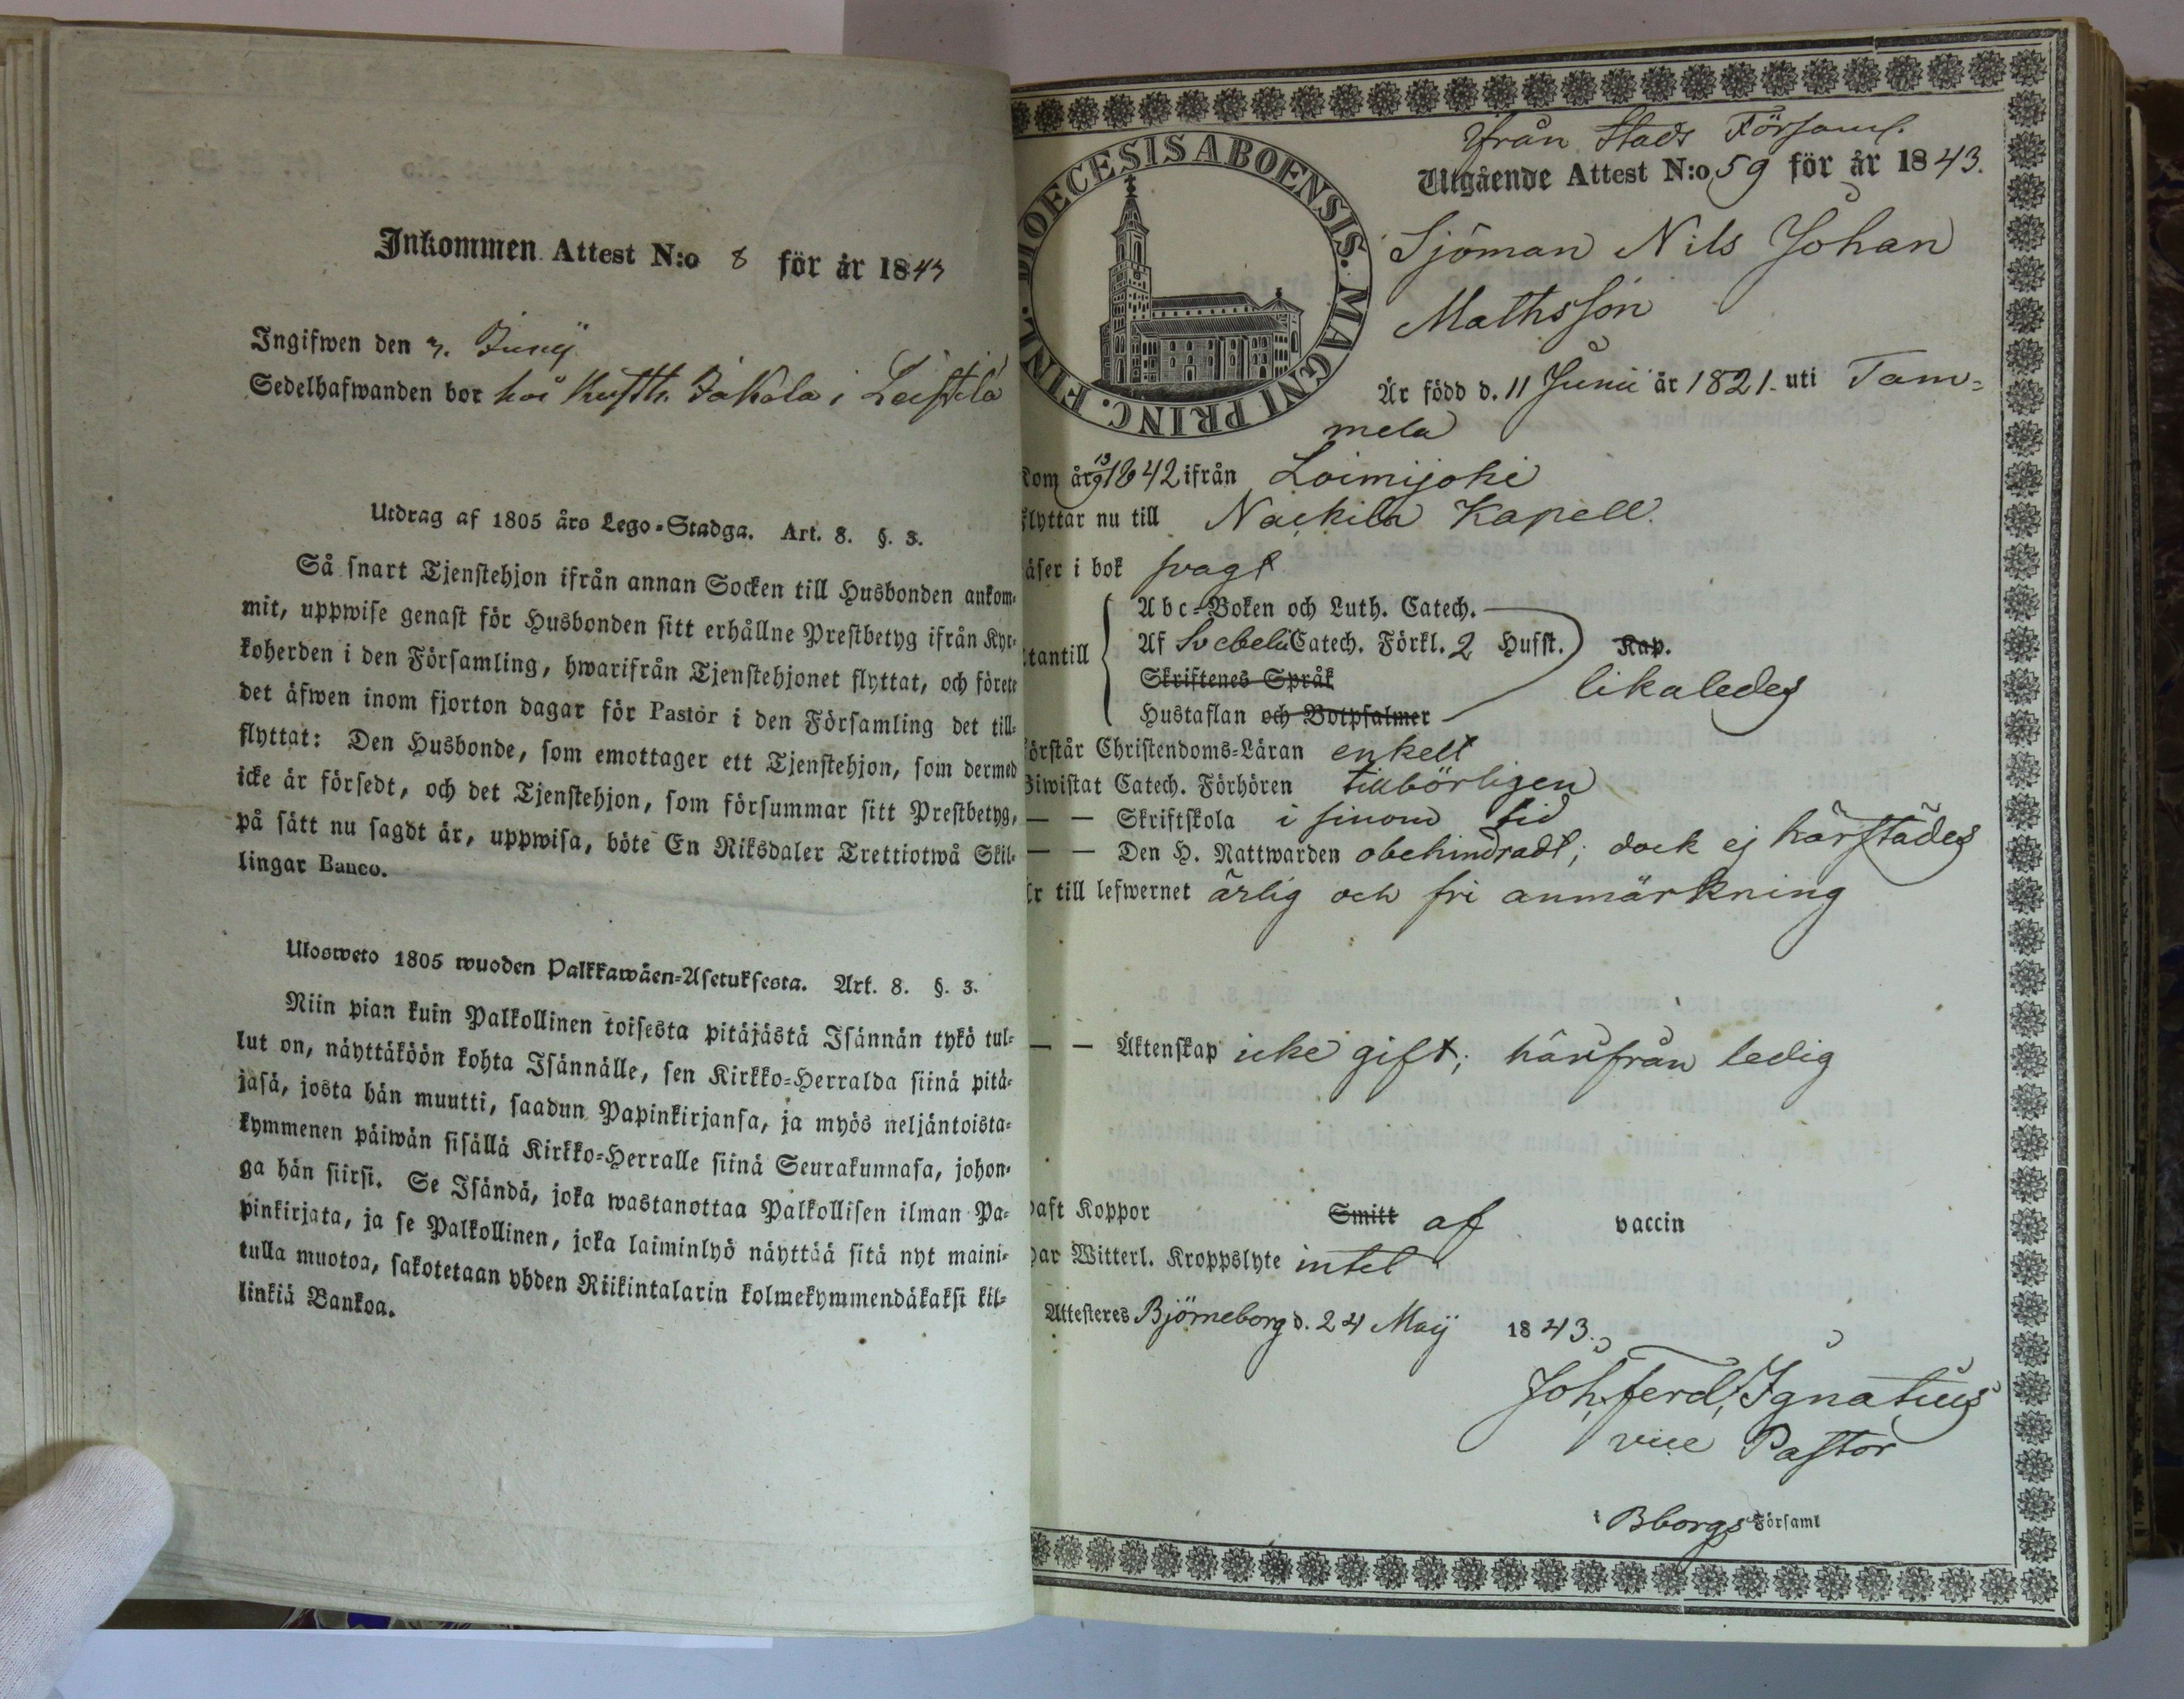 Inkommen Attest N:o 8 för år 1843
Ingifwen den 3. Junij
Sedelhafwanden bor hos Jakola i Leistilä
Utdrag af 1805 års Lego-Stadga. Art. 8. §. 3.
Så snart Tjenstehjon ifrån annan Socken till Husbonden ankom-
mit, uppwise genast för Husbonden sitt erhållne Prestbetyg ifrån Kyr-
koherden i den Församling, hwarifrån Tjenstehjonet flyttat, och förete
det äfwen inom fjorton dagar för Pastor i den Församling det till-
flyttat: Den Husbonde, som emottager ett Tjenstehjon, som dermed
icke är försedt, och det Tjenstehjon, som försummar sitt Prestbetyg,
på sätt nu sagdt är, uppwisa, böte En Riksdaler Trettiotwå Skil-
lingar Banco.
Ulosweto 1805 wuoden Palkkawäen-Asetuksesta. Art. 8. §. 3.
Niin pian kuin Palkollinen toisesta pitäjästä Isännän tykö tul-
lut on, näyttäköön kohta Isännälle, sen Kirkko-Herralda siinä pitä-
jäsä, josta hän muutti, saadun Papinkirjansa, ja myös neljäntoista-
kymmenen päiwän sisällä Kirkko-Herralle siinä Seurakunnasa, johon-
ga hän siirsi. Se Isändä, joka wastanottaa Palkollisen ilman Pa-
pinkirjata, ja se Palkollinen, joka laiminlyö näyttää sitä nyt maini-
tulla muotoa, sakotetaan yhden Riikintalarin kolmekymmendäkaksi kil-
linkiä Bankoa.
DIOECESIS ABOENSIS. MAGNI PRINC. FINL.
Ifrån Stads Församl.
Utgående Attest N:o 59 för år 1843.
Sjöman Nils Johan
Mathsson
Är född d. 11 Junii år 1821 uti Tam-
mela
kom år 13/9 1842 ifrån Loimijoki
flyttar nu till Nackila Kapell.
äser i bok svagt
Abc-Boken och Luth. Catech.
tantill Af Svebelii Catech. Förkl. 2 Hufst. Kap.
Skriftenes Språk likaledes
Hustaflan och Botpsalmer
örstår Christendoms-Läran enkelt
Biwistat Catech. Förhören tillbörligen
— — Skriftskola i sinom tid
— — Den H. Nattwarden obehindradt; dock ej härstädes
r till lefwernet ärlig och fri anmärkning
— — Äktenskap icke gift; härifrån ledig
aft Koppor Smitt af vaccin
ar Witterl. Kroppslyte intet
Attesteres Björneborg d. 24 Maij 1843.
Joh. Ferd. Ignatius
vice Pastor
i Bborgs Församl